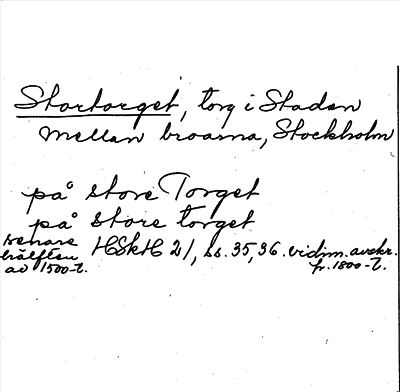 Stortorget, torg i Staden
mellan broarna, Stockholm
på store Torget
på store torget
senare hälften av 1500-t. HSkH 21, ss. 35, 36. vidim. avskr. fr. 1800-t.